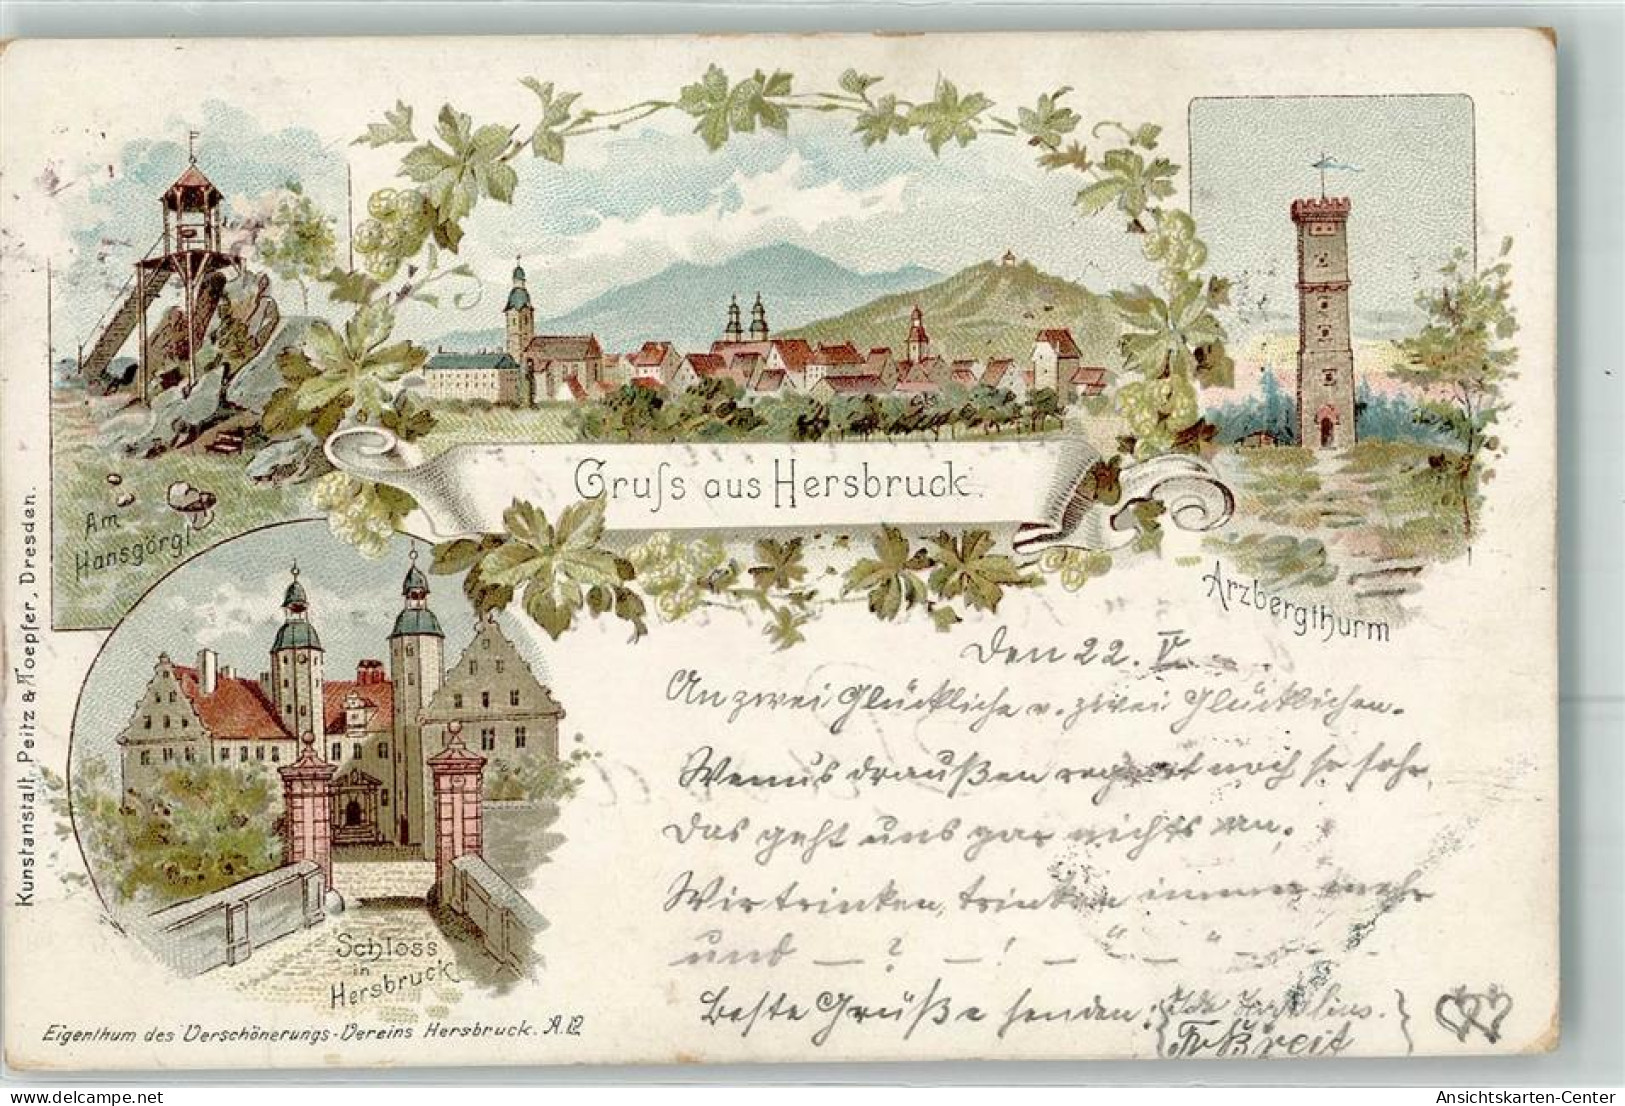 Am
Hansgörgl
Gruſs aus Hersbruck.
Arzbergthurm
Schloss
in
Hersbruck
Kunstanstalt, Peitz & Toepfer, Dresden.
Eigenthum des Verschönerungs-Vereins Hersbruck. A.12
Den 22. V.
An zwei Glückliche v. zwei Glücklichen.
Wenns draußen regnet noch so sehr,
Das geht uns gar nichts an.
Wir trinken, trinken immer mehr
und — ? — ! — " — " —
Beste Grüße senden:
www.Ansichtskarten-Center.com